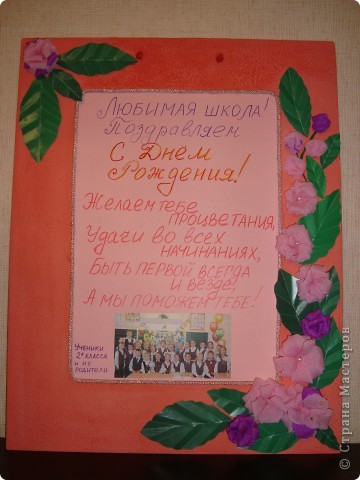 Любимая школа!
Поздравляем
С Днём
Рождения!
Желаем тебе
процветания,
Удачи во всех
начинаниях,
Быть первой всегда
и везде,
А мы поможем тебе!
Ученики
2а класса
и их
родители
© Страна Мастеров